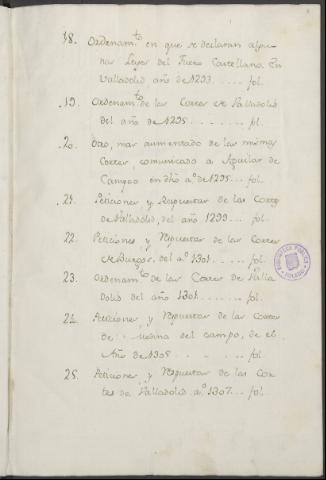 18. Ordenam.to en que se declaran algu-
nas Leyes del Fuero Castellano. En
Valladolid año de 1293. .... fol.
19. Ordenam.to de las Cortes de Valladolid
del año de 1295 ...... fol.
20. Otro, mas aumentado de las mismas
Cortes, comunicado a Aguilar de
Campoo en dho a.o de 1295... fol.
21. Peticiones y Respuestas de las Cortes
de Valladolid, del año 1299 ... fol.
22. Peticiones y Respuestas de las Cortes
de Burgos, del a.o 1301. ..... fol.
23. Ordenam.to de las Cortes de Valla
dolid del año 1301. ....... fol.
24. Peticiones y Respuestas de las Cortes
de Medina del campo, de el
Año de 1305 ....... fol.
25. Peticiones y Respuestas de las Cor-
tes de Valladolid a.o 1307... fol.
BIBLIOTECA PUBLICA
TOLEDO